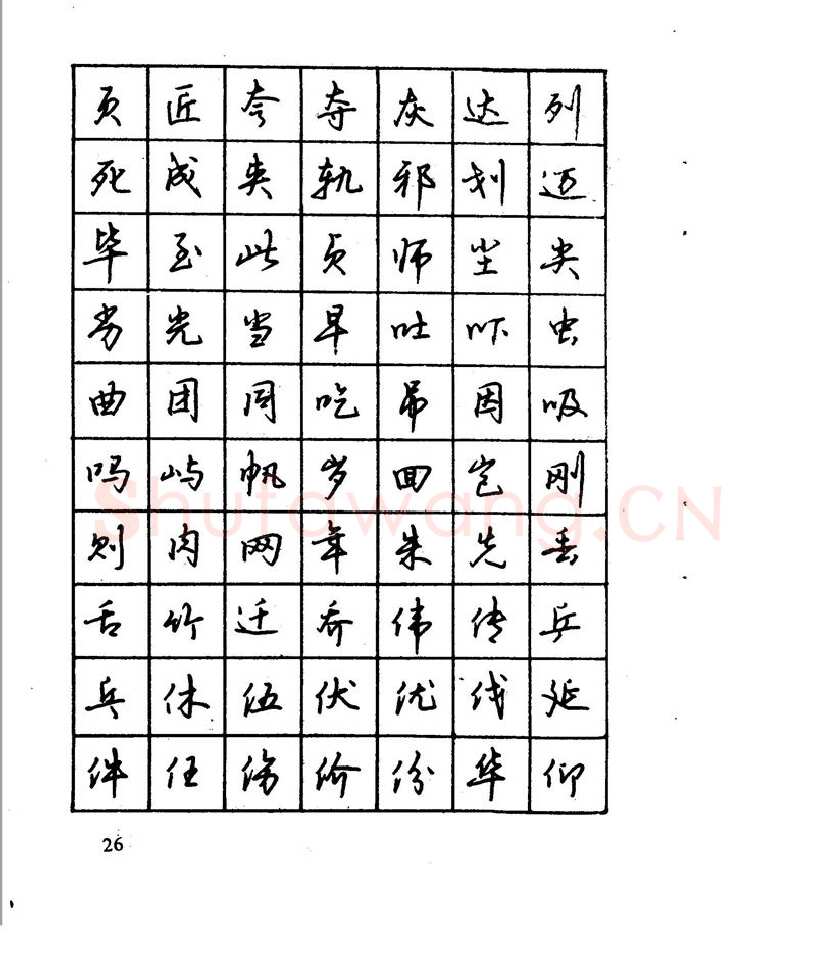 页 匠 夸 夺 灰 达 列
死 成 夹 轨 邪 划 迈
毕 至 此 贞 师 尘 尖
劣 光 当 早 吐 吓 虫
曲 团 同 吃 吊 因 吸
吗 屿 帆 岁 回 岂 刚
则 肉 网 年 朱 先 丢
舌 竹 迁 乔 伟 传 乒
乓 休 伍 伏 优 伐 延
件 任 伤 价 份 华 仰
Shufawang.CN
26